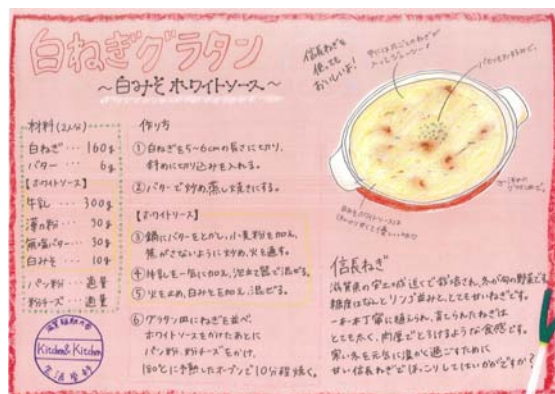 白ねぎグラタン
～白みそホワイトソース～
材料(2人分)
白ねぎ… 160g
バター… 6g
【ホワイトソース】
牛乳… 300g
薄力粉… 30g
無塩バター… 30g
白みそ… 10g
パン粉… 適量
粉チーズ… 適量
Kitchen&Kitchen
作り方
①白ねぎを5~6cmの長さに切り、
斜めに切り込みを入れる。
②バターで炒め、蒸し焼きにする。
【ホワイトソース】
③鍋にバターをとかし、小麦粉を加え、
焦がさないように炒め、火を通す。
④牛乳を一気に加え、泡立て器で混ぜる。
⑤火を止め、白みそを加え、混ぜる。
⑥グラタン皿にねぎを並べ、
ホワイトソースをかけたあとに
パン粉、粉チーズをかけ、
180℃に予熱したオーブンで10分程焼く。
信長ねぎを
使っても
おいしいよ!
信長ねぎ
滋賀県の安土城近くで栽培され、冬が旬の野菜です。
糖度はなんとリンゴ並みと、とても甘いねぎです。
一本一本丁寧に植えられ、育てられたねぎは
とても太く、肉厚でとろけるような食感です。
寒い冬を元気に温かく過ごすために
甘い信長ねぎでほっこりしてはいかがですか?